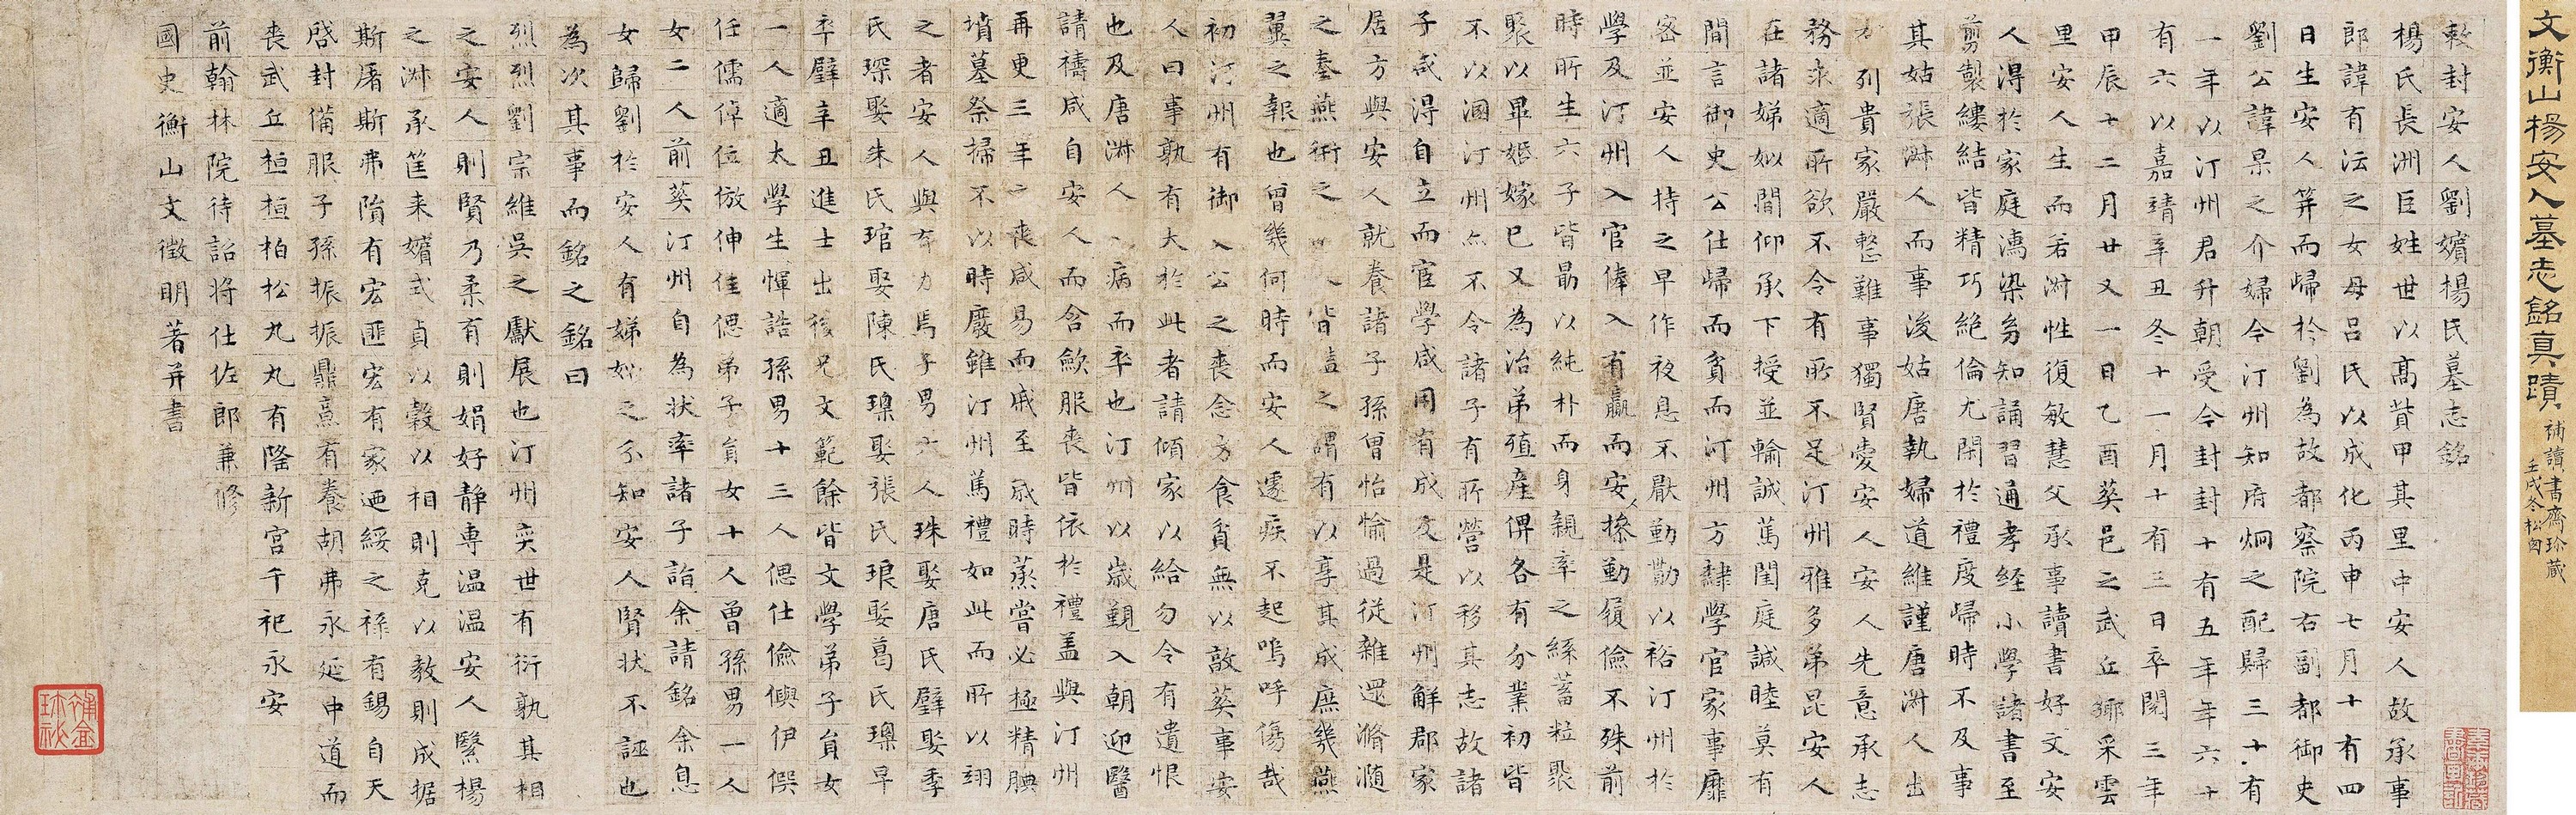 文衡山楊安人墓志銘真蹟
補讀書齋珍藏
壬戌冬松窗
敕封安人劉嬪楊氏墓志銘
楊氏長洲巨姓世以高貲甲其里中安人故承事
郎諱有法之女母呂氏以成化丙申七月十有四
日生安人筓而歸於劉為故都察院右副都御史
劉公諱杲之介婦今汀州知府炯之配歸三十有
一年以汀州君升朝受今封封十有五年年六十
有六以嘉靖辛丑冬十一月十有三日卒閱三年
甲辰十二月廿又一日乙酉葬邑之武丘鄉采雲
里安人生而若淑性復敏慧父承事讀書好文安
人淂於家庭濡染芻知誦習通孝經小學諸書至
剪製縷結皆精巧絕倫尤閑於禮度歸時不及事
其姑張淑人而事後姑唐執婦道維謹唐淑人出
列貴家嚴整難事獨賢愛安人安人先意承志
務求適所欲不令有所不足汀州雅多弟昆安人
在諸娣姒間仰承下授並輸誠篤閨庭諴睦莫有
間言御史公仕歸而貧而汀州方隸學官家事靡
密並安人持之早作夜息不厭勤勩以裕汀州於
學及汀州入官俸入有贏而安人操動履儉不殊前
時所生六子皆勗以純朴而身親率之絲蓄粒聚
聚以畢婚嫁已又為治弟殖產俾各有分業初皆
不以溷汀州亦不令諸子有所營以移其志故諸
子咸淂自立而宦學咸用有成及是汀州解郡家
居方與安人就養諸子孫曾怡愉過從雜遝滫瀡
之奏燕衎之皆盡之謂有以享其成庶幾燕
翼之報也曾幾何時而安人遽疾不起嗚呼傷哉
初汀州有御公之喪念方食貧無以敦葬事安
人曰事孰有大於此者請傾家以給勿令有遺恨
也及唐淑人病而卒也汀州以歲覲入朝迎醫
請禱咸自安人而含歛服喪皆依於禮盖與汀州
再更三年之喪咸易而戚至歲時蒸嘗必極精腆
墳墓祭掃不以時廢雖汀州篤禮如此而所以翊
之者安人與有力焉子男六人珠娶唐氏璧娶季
氏琛娶朱氏琯娶陳氏璟娶張氏琅娶葛氏璟早
卒璧辛丑進士出後兄文範餘皆文學弟子員女
一人適太學生惲誥孫男十三人偲仕儉傆伊僎
任儒倬位倣伸佳偲弟子員女十人曾孫男一人
女二人前葬汀州自為狀率諸子詣余請銘余息
女歸劉於安人有娣姒之分知安人賢狀不誣也
為次其事而銘之銘曰
烈烈劉宗維吳之獻展也汀州奕世有衍孰其相
之安人則賢乃柔有則娟好静専温温安人繄楊
之淑承筐来嬪式貞以穀以相則克以教則成据
斯屠斯弗隋有宏匪宏有家迺綏之祿有錫自天
啓封備服子孫振振鼎烹有養胡弗永延中道而
喪武丘桓桓柏松丸丸有隆新宮千祀永安
前翰林院待詔将仕佐郎兼修
國史衡山文徵明著并書